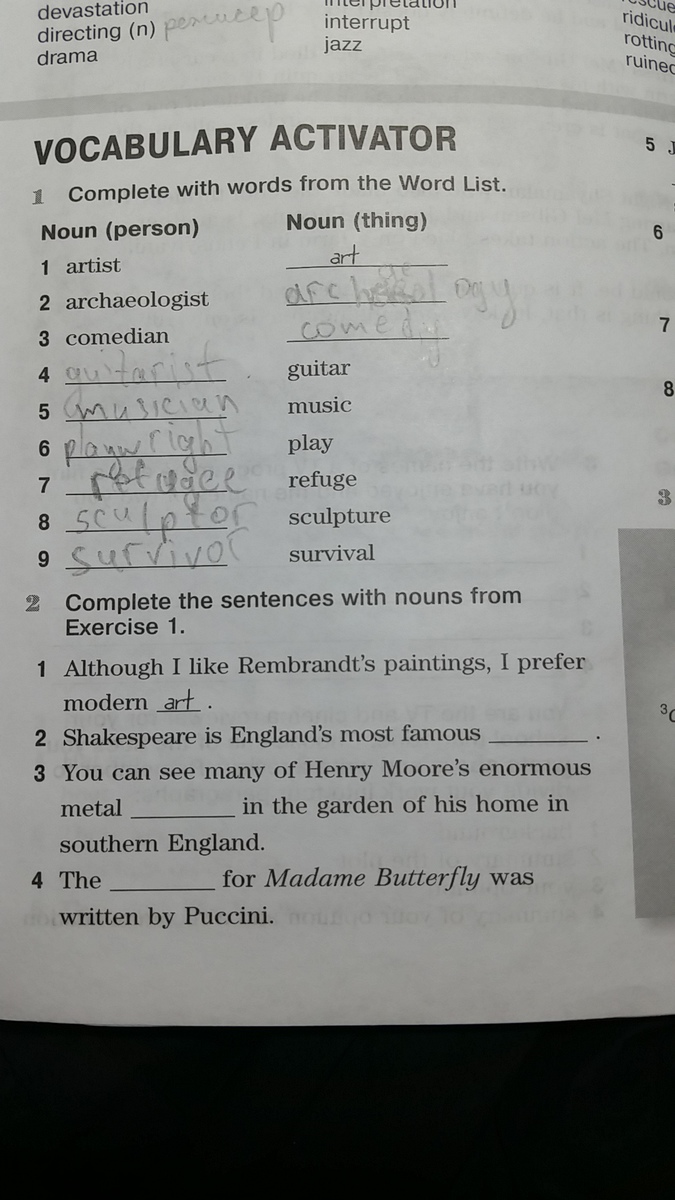 devastation
directing (n)
drama
interpretation
interrupt
jazz
rescue
VOCABULARY ACTIVATOR
1 Complete with words from the Word List.
Noun (person) Noun (thing)
1 artist art
2 archaeologist archaeology
3 comedian comedy
4 guitarist guitar
5 musician music
6 playwright play
7 refugee refuge
8 sculptor sculpture
9 survivor survival
2 Complete the sentences with nouns from
Exercise 1.
1 Although I like Rembrandt's paintings, I prefer
modern art .
2 Shakespeare is England's most famous ________ .
3 You can see many of Henry Moore's enormous
metal ________ in the garden of his home in
southern England.
4 The ________ for Madame Butterfly was
written by Puccini.
5 J
6
7
8
3